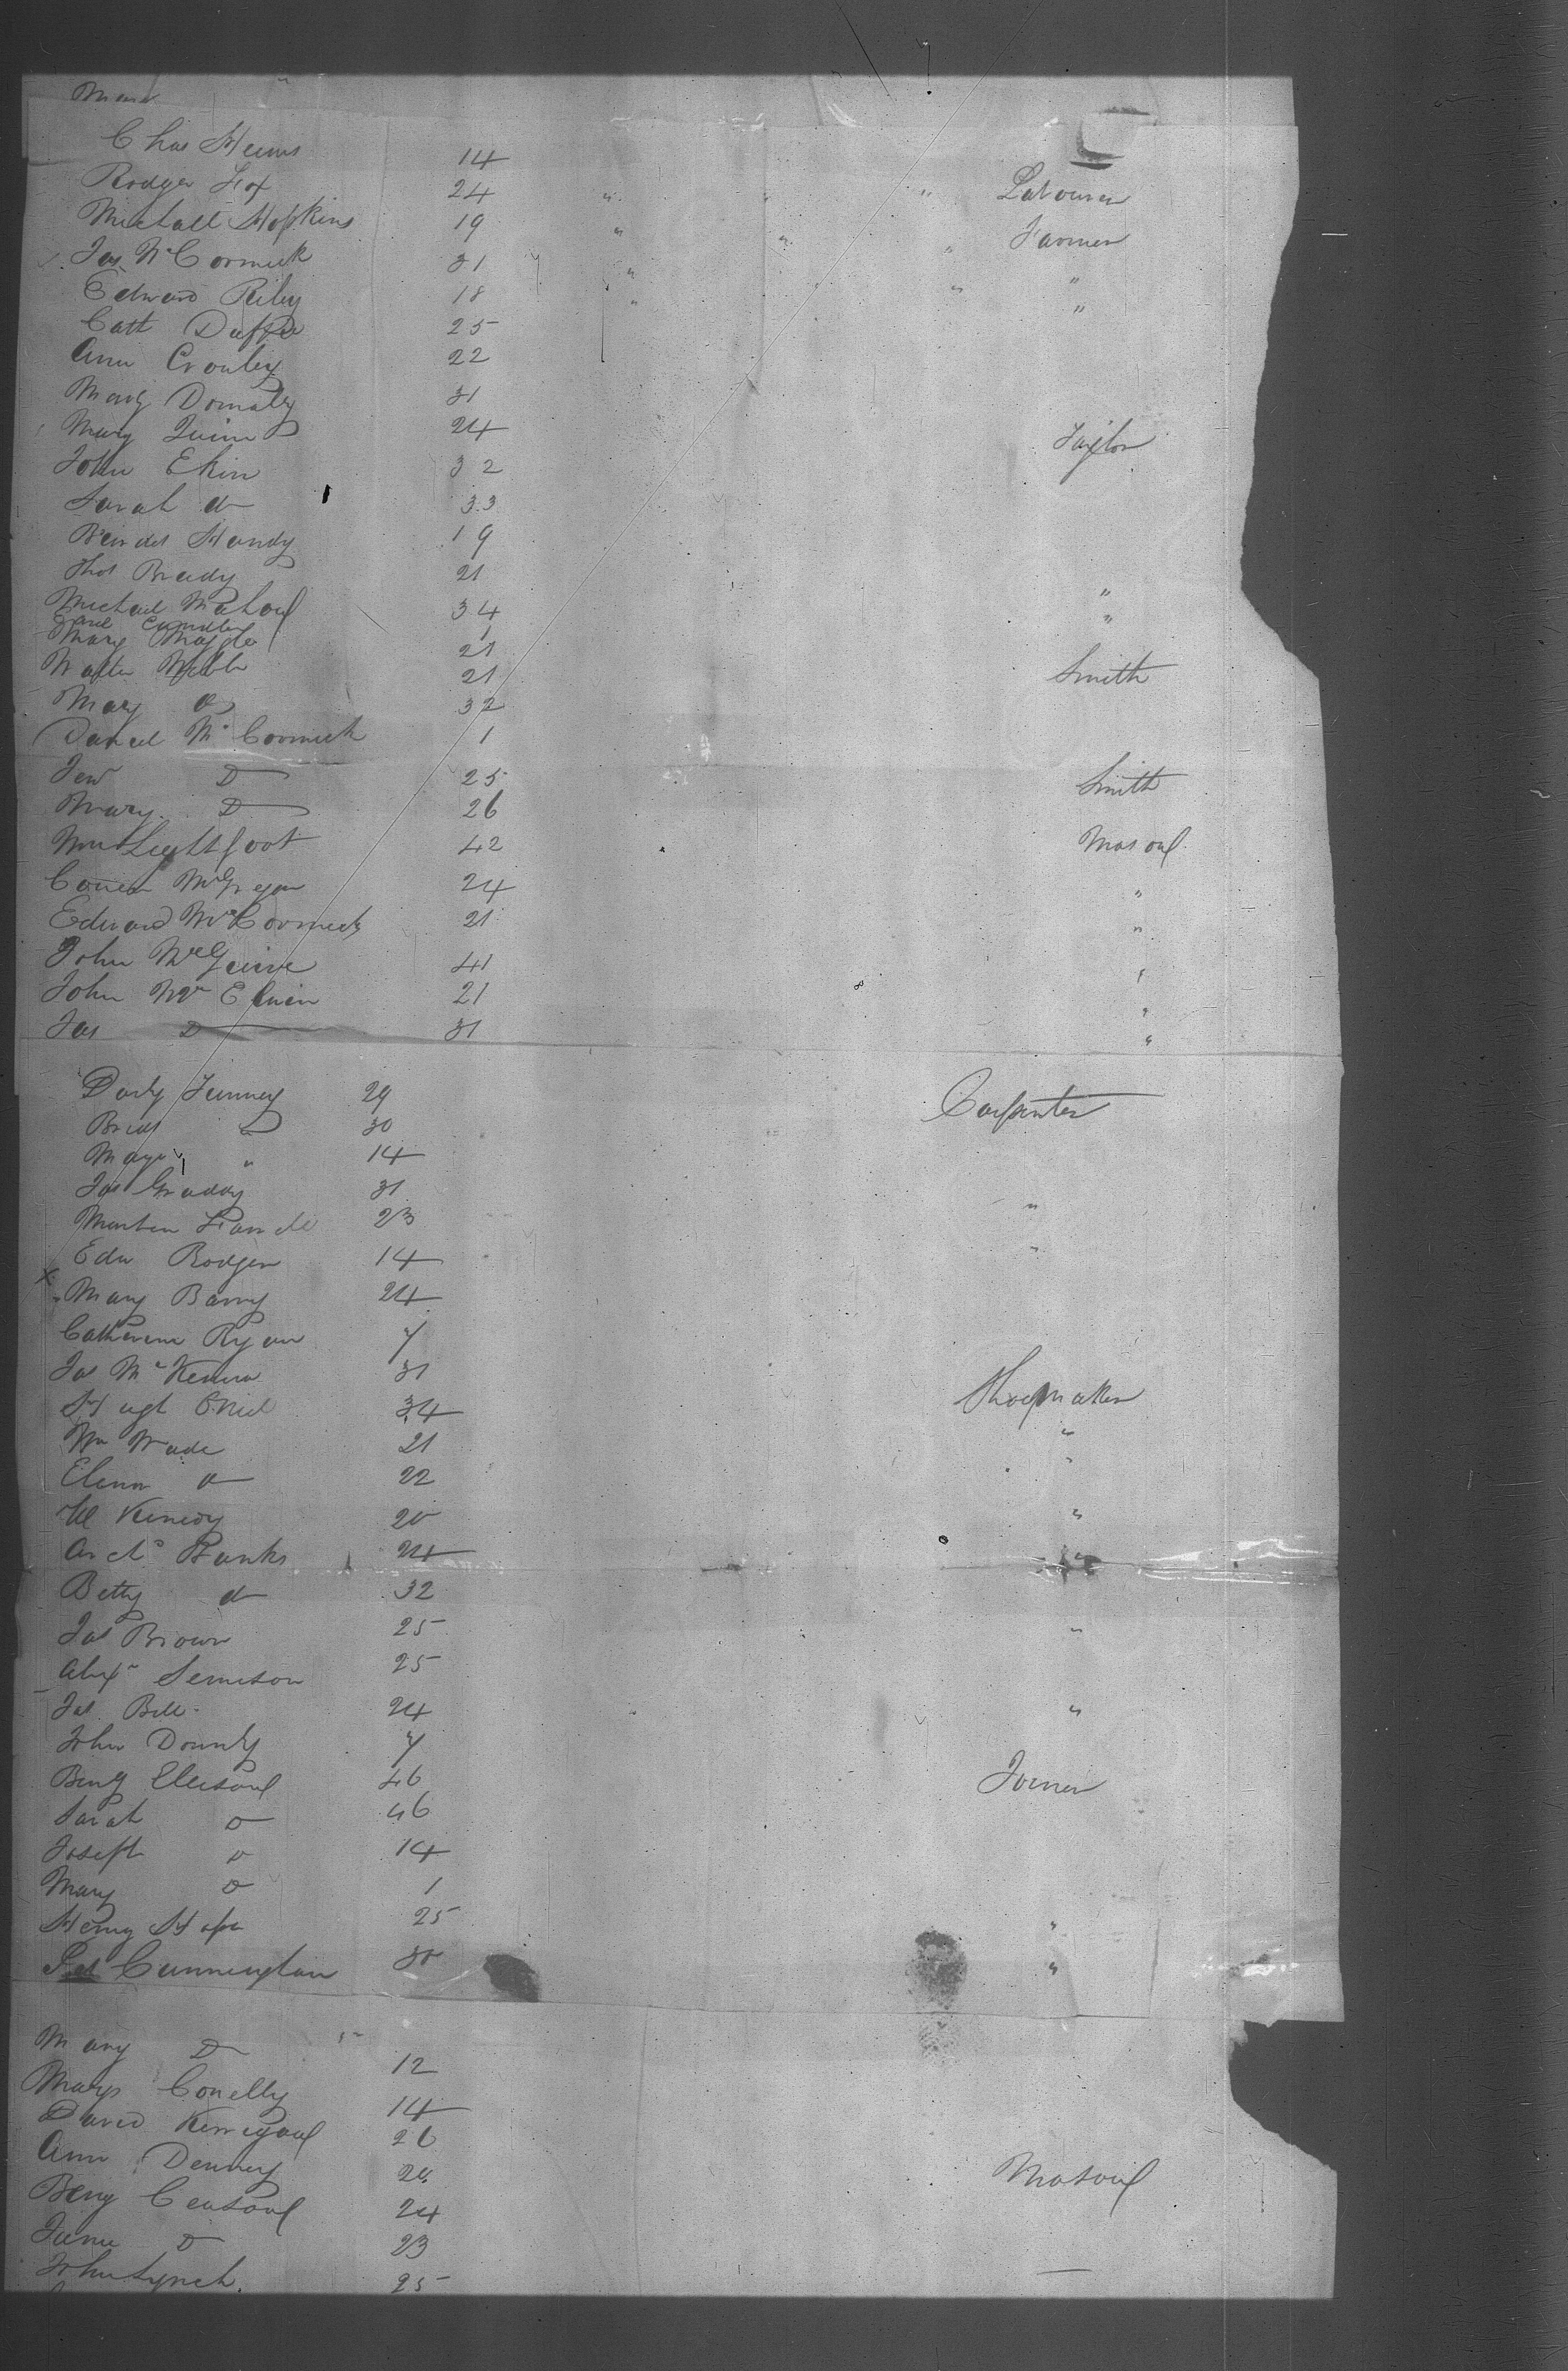 Chas Heems 14
Rodger Fox 24 " " " Labourer
Michall Hopkins 19 " " " Farmer
Jas McCormick 31 " " "
Edward Riley 18 " "
Cath Duffe 25
Ann Crouley 22
Mary Donaly 31
Mary Quinn 24 Taylor
John Ekin 32
Sarah do 33
Handy 19
Thos Brady 21
Michael Mahoul 34 "
Mary Magde 21
Walter Webb 21 Smith
Mary Do 32
Daniel McCormick 1
D 25 Smith
Mary D 26
Wm Lightfoot 42 Masoul
McGregor 24 "
Edward McCormick 21 "
John McGuire 41 "
John Mc Elwin 21 "
Jas D 31 "
Darby Funney 29 Carpenter
Brid D 30
Mary " 14
Jas Graddy 31 "
Marten 23 "
Edw Rodger 14
Mary Barry 24
Catherine Ryan 7
Jas McKenna 31 Shoemaker
Hugh ONeil 34 "
Wm Wade 21 "
Elenn do 22
Kenedy 20 "
Archd Banks 24 "
Betty do 32
Jas Brown 25 "
Alexr Semeson 25
Jas Bell 24 "
John Downly 7
Benj Elleisoul 46 Joiner
Sarah Do 46
Joseph Do 14
Mary Do 1
Henry 25 "
Pat Cunningham 30 "
Mary D 12
Mary Conelly 14
David Kerrigaul 26
Ann Denney 20 Masoul
Benj 24
D 23
John Lynch 25